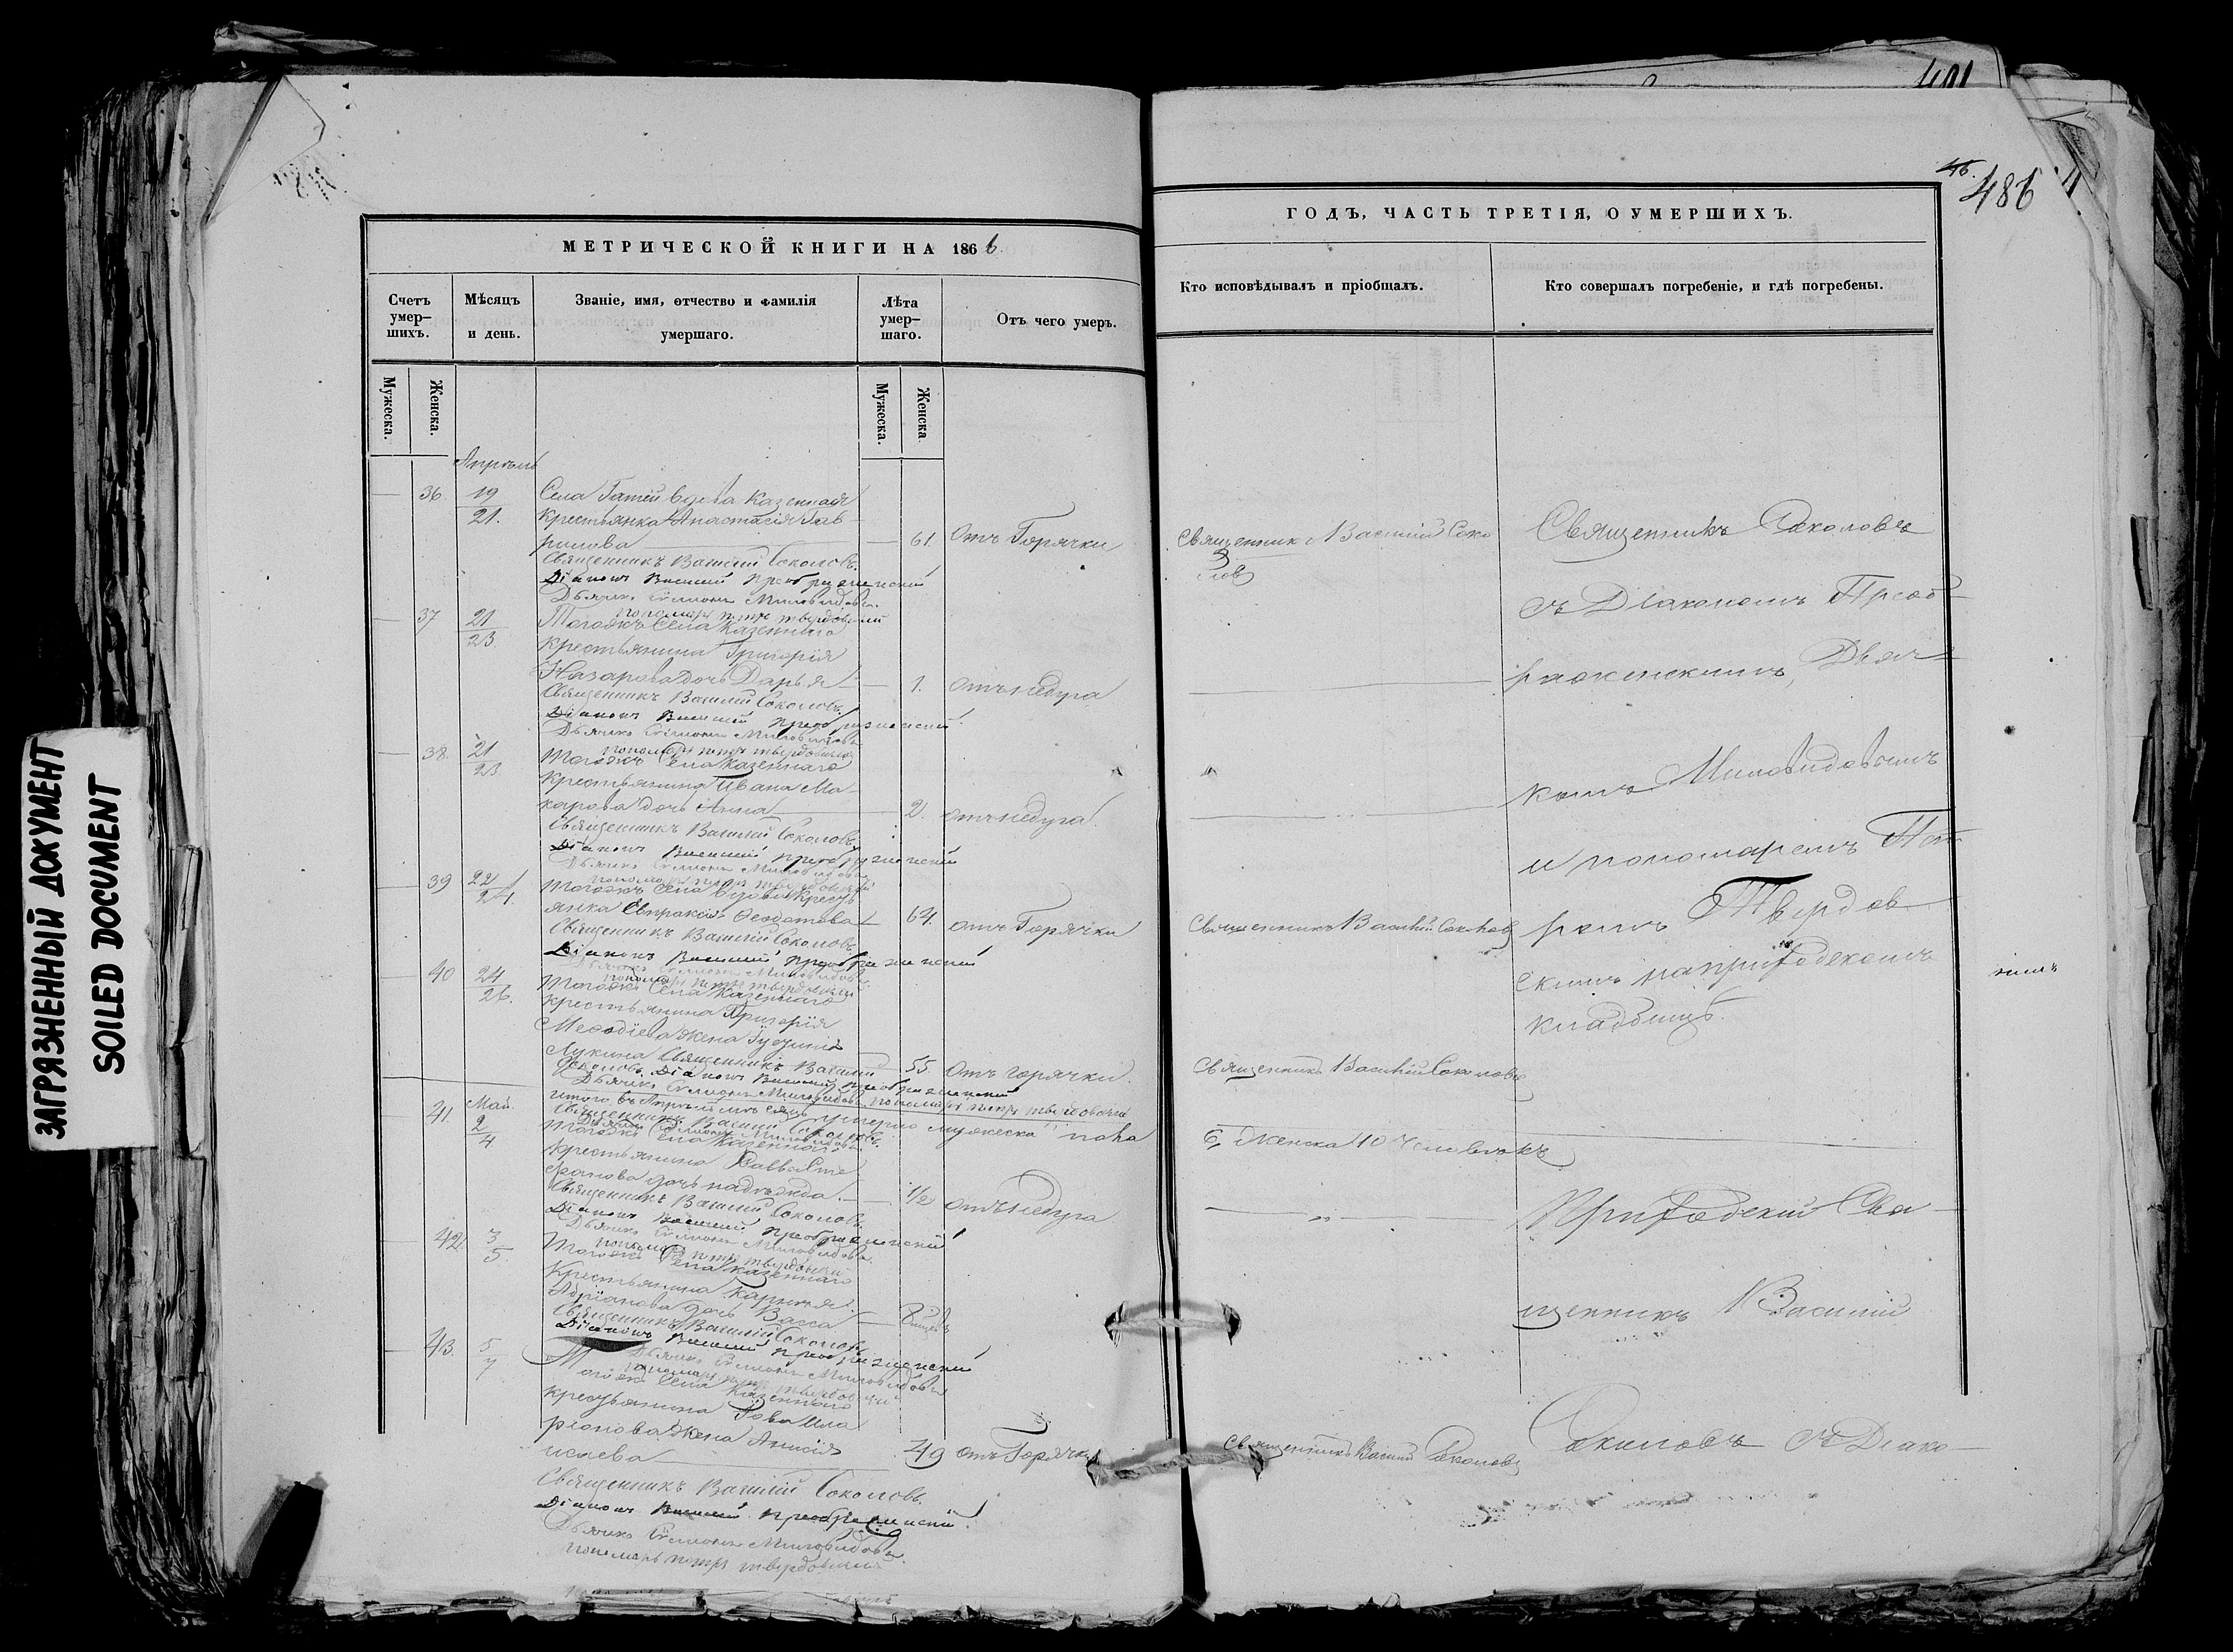 ЗАГРЯЗНЕННЫЙ ДОКУМЕНТ
SOILED DOCUMENT
МЕТРИЧЕСКОЙ КНИГИ НА 1866
Счетъ умер-шихъ.
Мѣсяцъ и день.
Званіе, имя, отчество и фамилія умершаго.
Лѣта умер-шаго.
Отъ чего умеръ.
Мужеска.
Женска.
Мужеска.
Женска
Апрель
36. 19/21. Села Гатей вдова казенная
крестьянка Анастасія Гав
рилова 61. отъ Горячки
Священникъ Василій Соколовъ.
Діаконъ Василій Преображенскій
Дьячекъ Симеонъ Миловидовъ.
пономарь петръ твердовскій
37 21/23 Тогожъ Села Казеннаго
крестьянина Григорія
Назарова дочь Дарья 1. отъ недуга
Священникъ Василій Соколовъ.
Діаконъ Василій Преображенскій
Дьячекъ Симеонъ Миловидовъ
пономарь петръ твердовскій
38. 21/23 Тогожъ Села казеннаго
крестьянина Ивана Ма-
карова дочь Анна 2. отъ недуга.
Священникъ Василій Соколовъ.
Діаконъ Василій преображенскій
Дьячекъ Симеонъ Миловидовъ
пономарь петръ твердовскій
39 22/24 Тогожъ Села вдова крест
янка Евпраксія Ѳеодотова 64. отъ Горячки
Священникъ Василій Соколовъ.
Діаконъ Василій преображенскій
Дьячекъ Симеонъ Миловидовъ
пономарь петръ твердовскій
40 24/26. Тогожъ Села Казеннаго
крестьянина Григорія
Меѳодіева жена
Лукина Священникъ Василій 55 отъ горячки.
Соколовъ. Діаконъ Василій преображенскій
Дьячекъ Симеонъ Миловидовъ пономарь петръ твердовскій
итого въ Апрелѣ мѣсяцѣ умерло мужеска пола
6, женска 10 Человекъ
Священникъ Василій Соколовъ.
Дьячекъ Симеонъ Миловидовъ
Май.
41. 2/4 Тогожъ Села Казеннаго
крестьянина Савва Сте
фанова дочь надежда. 1/2 отъ недуга
Священникъ Василій Соколовъ.
Діаконъ Василій преображенскій
Дьячекъ Симеонъ Миловидовъ.
пономарь петръ твердовскій
42 3/5. Тогожъ Села казеннаго
Крестьянина
Адріанова дочь Васса 8
Священникъ Василій Соколовъ.
Діаконъ Василій преображенскій
Дьячекъ Симеонъ Миловидовъ
пономарь петръ твердовскій
43. 5/7 Тогожъ Села Казеннаго
крестьянина Іова Ила
ріонова жена Анисія
исаева 49 отъ Горячки
Священникъ Василій Соколовъ.
Діаконъ Василій преображенскій.
Дьячекъ Симеонъ Миловидовъ.
пономарь петръ твердовскій
46.
486
ГОДЪ, ЧАСТЬ ТРЕТІЯ, О УМЕРШИХЪ.
Кто исповѣдывалъ и пріобщалъ.
Кто совершалъ погребеніе, и гдѣ погребены.
Священник Василій Соко
ловъ
Священникъ Василій Соколовъ
Священникъ Василій Соколовъ
Священникъ Василій Соколовъ
Священникъ Соколовъ
съ Діакономъ Преоб-
раженскимъ, Дьяч-
комъ Миловидовымъ
и пономаремъ Пет
ромъ Твердов
скимъ на приходскомъ
кладбищѣ.
Приходскій Свя-
щенникъ Василій
Соколовъ съ Діако-